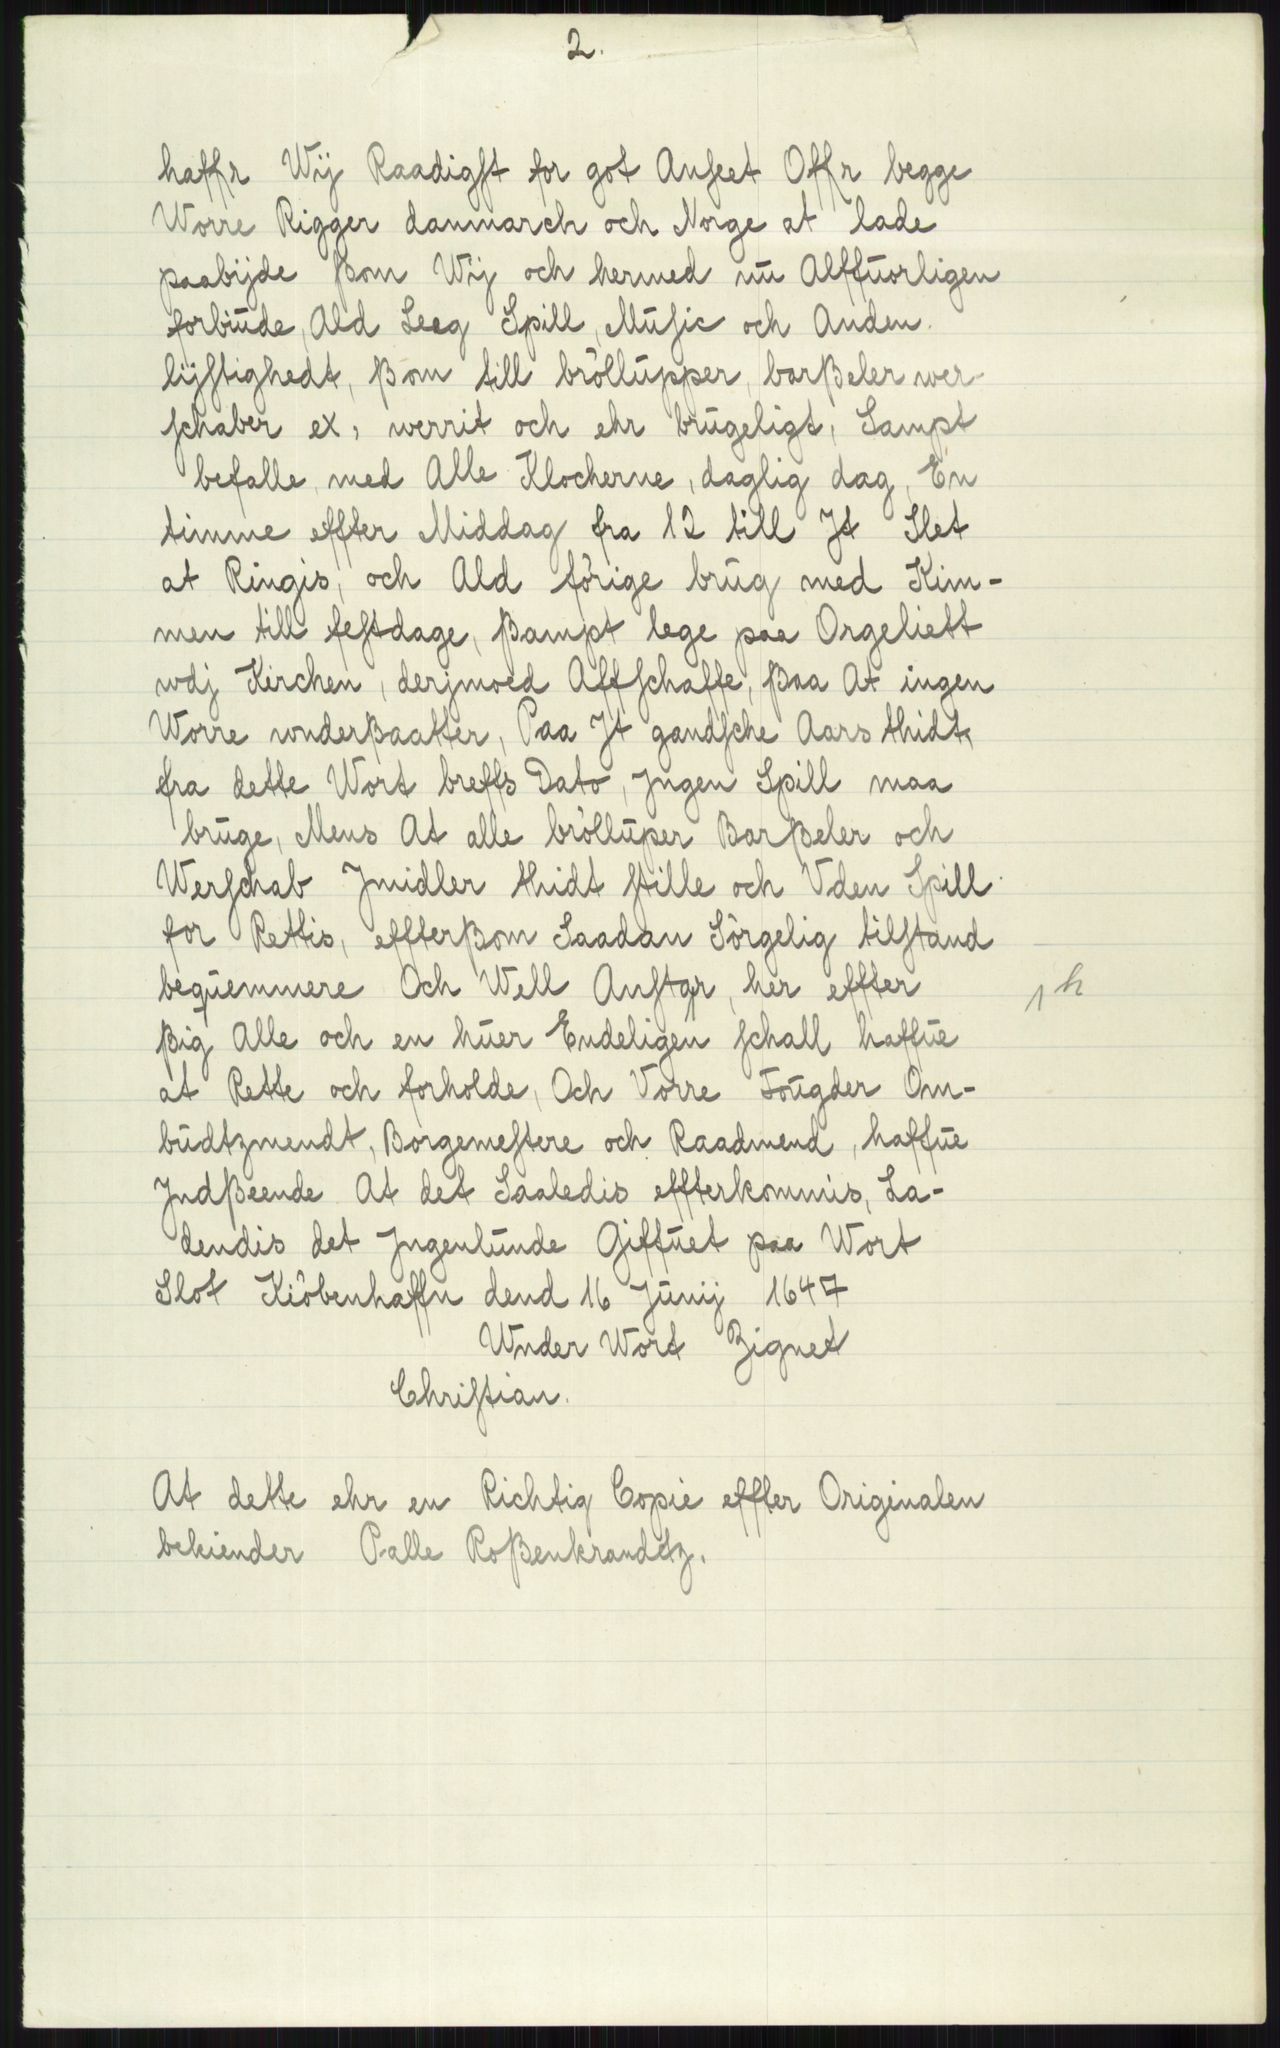 2.
haffr Wij Raadigst for got Anseet Offr begge
Worre Rigger danmarch och Norge at lade
paabijde ßom Wij och hermed nu Alffuorligen
forbiude, Ald Leeg Spill, Music och Anden
lijstighedt, ßom till bröllupper, barßeler wer-
schaber ex, werrit och ehr brugeligt, Sampt
befalle, med Alle Klocherne, daglig dag, En
timme effter Middag fra 12 till Jt Slet
at Ringis, och Ald förige brug med Kim-
men till festdage, ßampt lege paa Orgeliett
wdj Kirchen, derjmoed Affschaffe, ßaa At ingen
Worre wnderßaatter, Paa Jt gandsche Aars thidt,
fra dette Wort breffs Dato, Jngen Spill maa
bruge, Mens At alle bröllüper Barßeler och
Werschab Jmidler thidt stille och Vden Spill
for Rettis, effterßom Saadan Sörgelig tilstand
bequemmere Och Well Anstar, her effter
ßig Alle och en huer Endeligen schall haffue
at Rette och forholde, Och Vorre Fougder Om-
budtzmendt, Borgemestere och Raadmend, haffue
Jndßeende At det Saaledis effterkommis, La-
dendis det Jngenlunde Giffuet paa Wort
Slot Kiöbenhaffn dend 16 Junij 1647
Wnder Wort Zignet
Christian.
At dette ehr en Richtig Copie effter Originalen
bekiender Palle Roßenkrandtz.